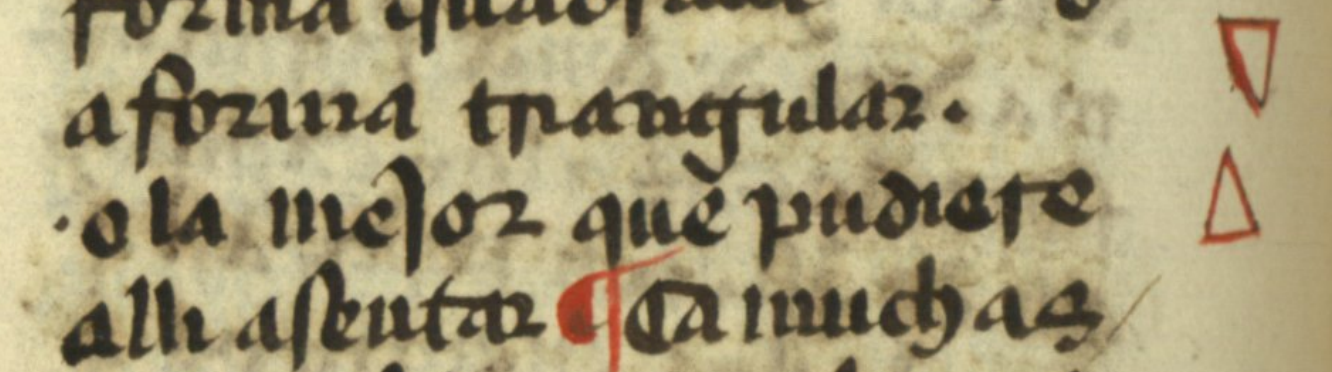 forma quadrada o
a forma triangular.
·o la mejor que pudiere
alli asentar ¶ Ca muchas